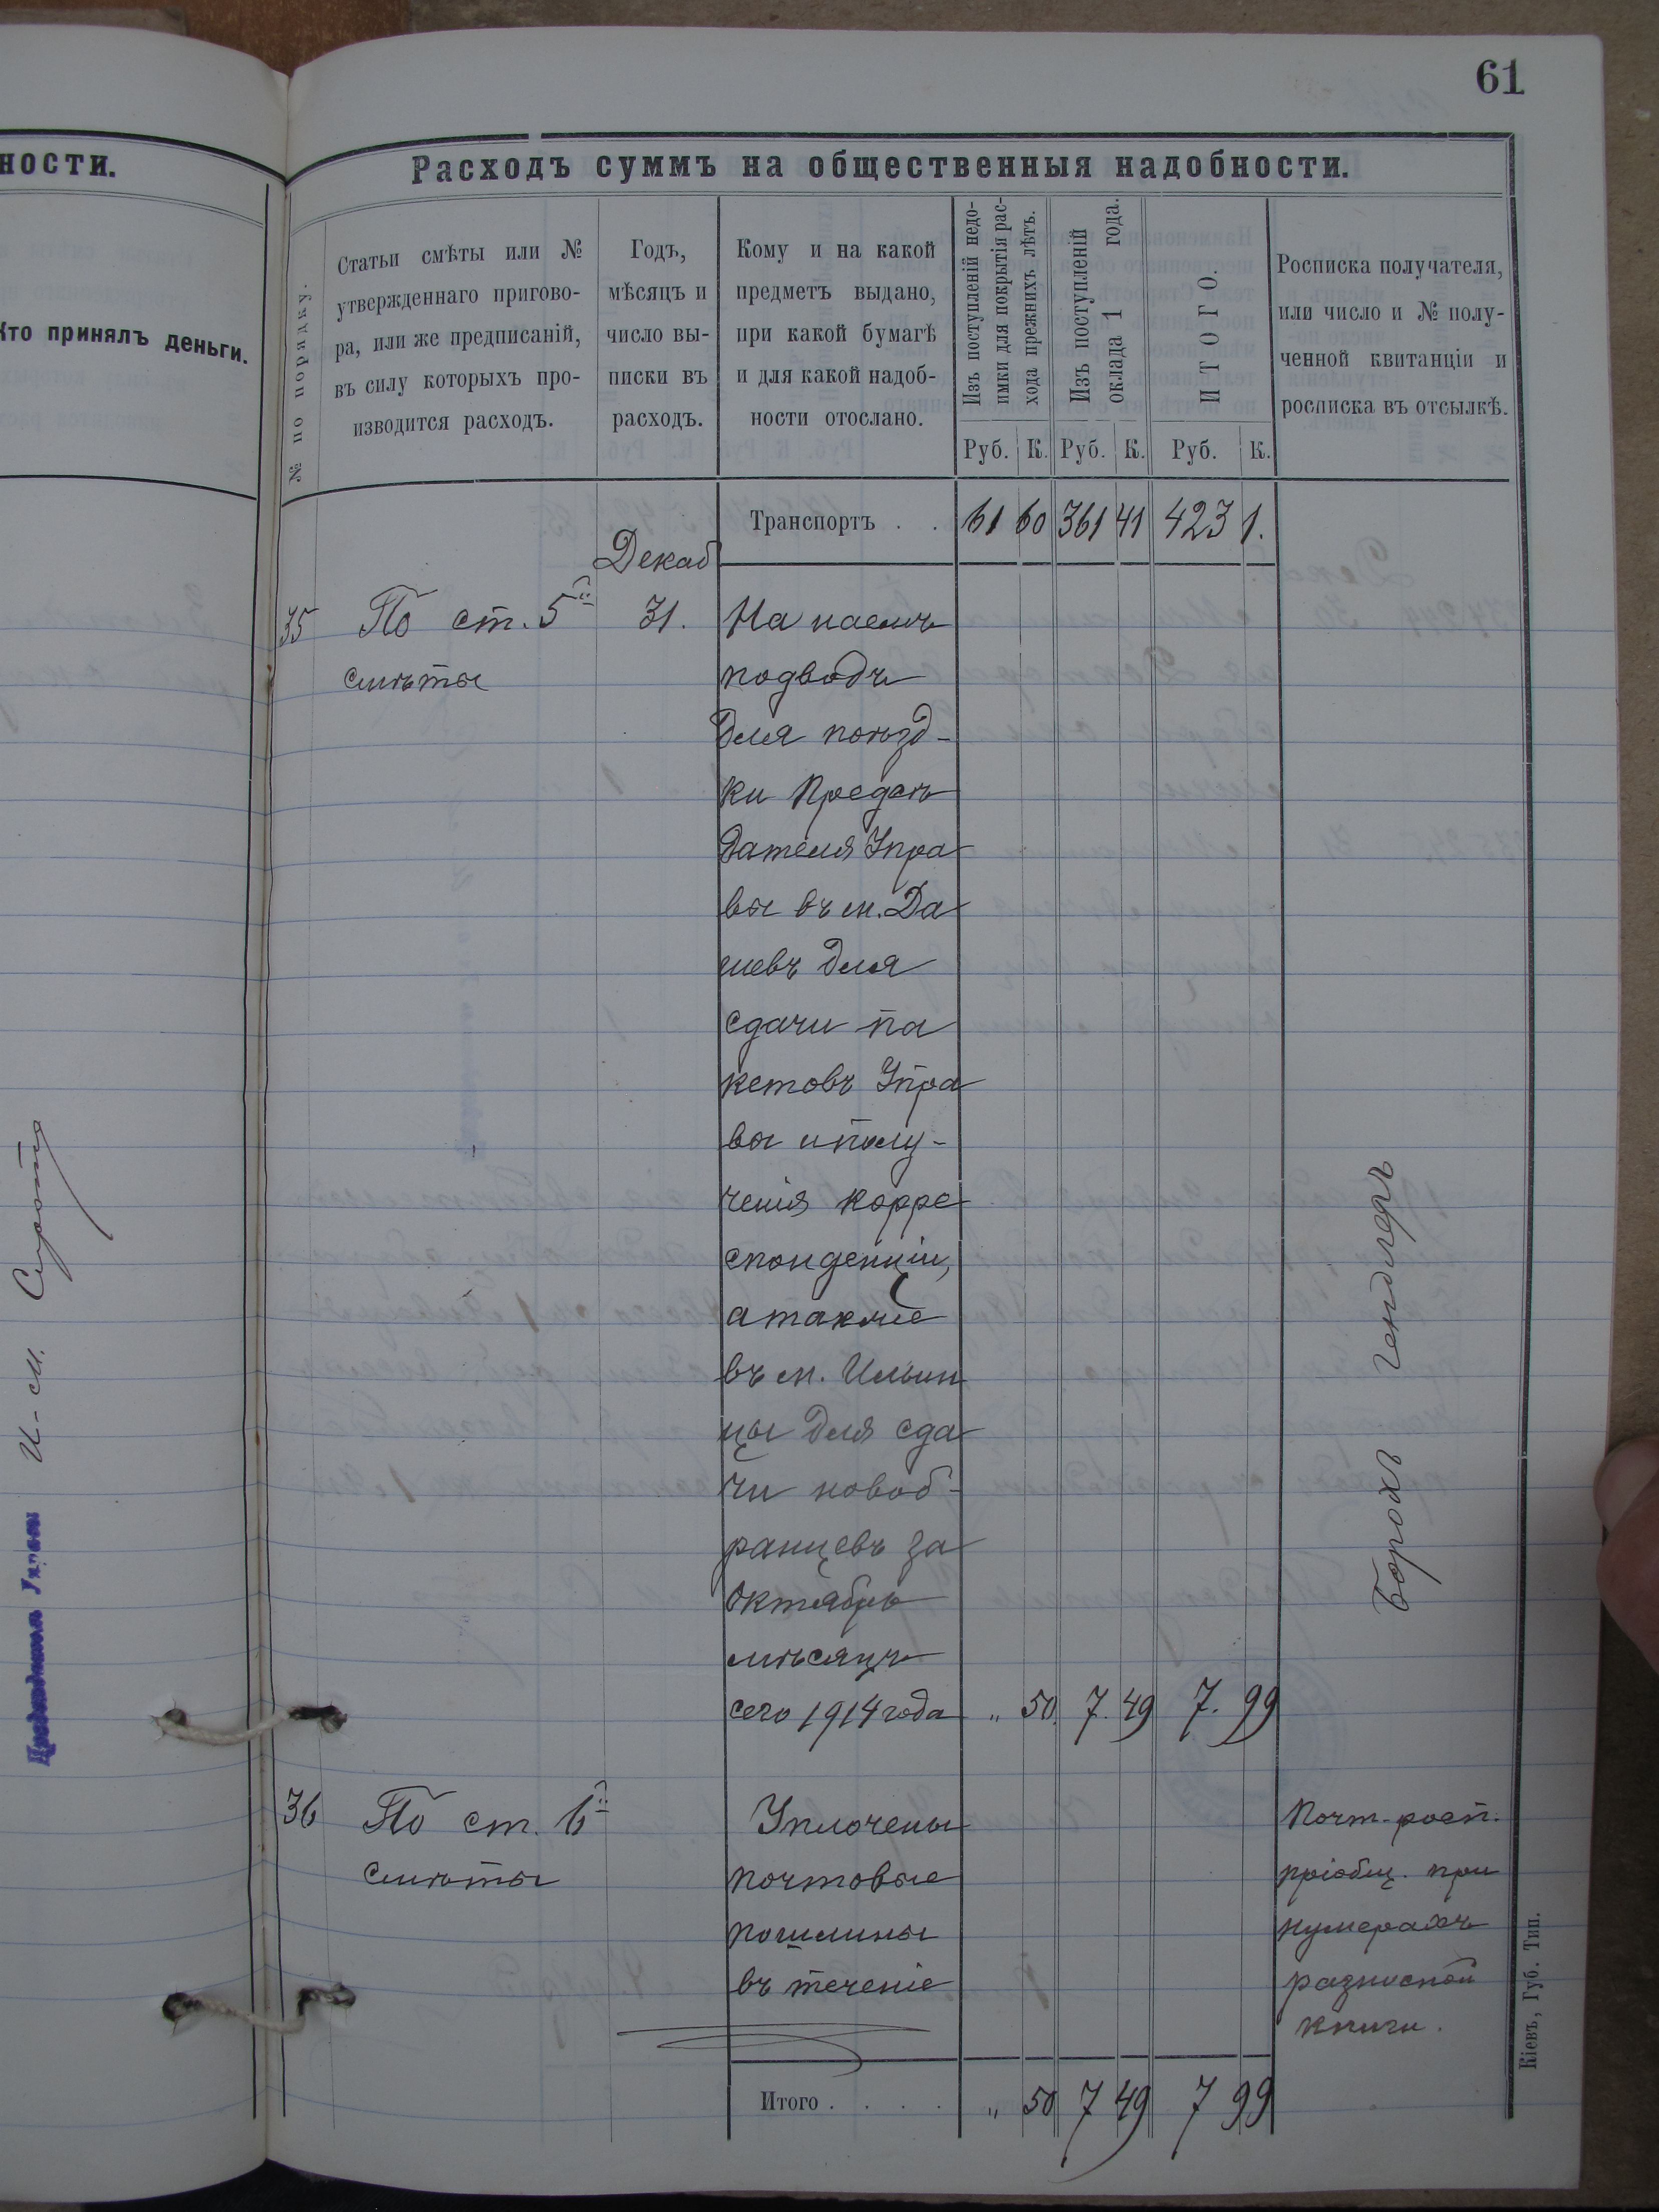 61
ности.
Кто принялъ деньги.
И-м. Сирота
Расходъ суммъ на общественныя надобности.
№ по порядку.
Статьи смѣты или №
утвержденнаго пригово-
ра, или же предписаній,
въ силу которыхъ про-
изводится расходъ.
Годъ,
мѣсяцъ и
число вы-
писки въ
расходъ.
Кому и на какой
предметъ выдано,
при какой бумагѣ
и для какой надоб-
ности отослано.
Изъ поступленій недо-
имки для покрытія рас-
хода прежнихъ лѣтъ.
Изъ поступленій
оклада 1 года.
ИТОГО.
Росписка получателя,
или число и № полу-
ченной квитанціи и
росписка въ отсылкѣ.
Руб. К. Руб. К. Руб. К.
Транспортъ . . 61 60 361 41 423 1.
Декаб
35 По ст. 5й 31. На наемъ
смѣты подводъ
для поѣзд-
ки Предсѣ
дателя Упра
вы въ м. Да
шевъ для
сдачи па
кетовъ Упра
вы и полу-
ченія корре
спонденціи,
а также
въ м. Ильин
цы для сда
чи новоб-
ранцевъ за
Октябрь
мѣсяцъ
сего 1914 года „ 50. 7. 49 7. 99
Борохъ Гендлеръ
36 По ст. 6й Уплочены Почт-росп.
смѣты почтовые пріобщ. при
пошлины нумерахъ
въ теченіе разносной
книги.
Итого . . . . „ 50 7 49 7 99
Кіевъ, Губ. Тип.